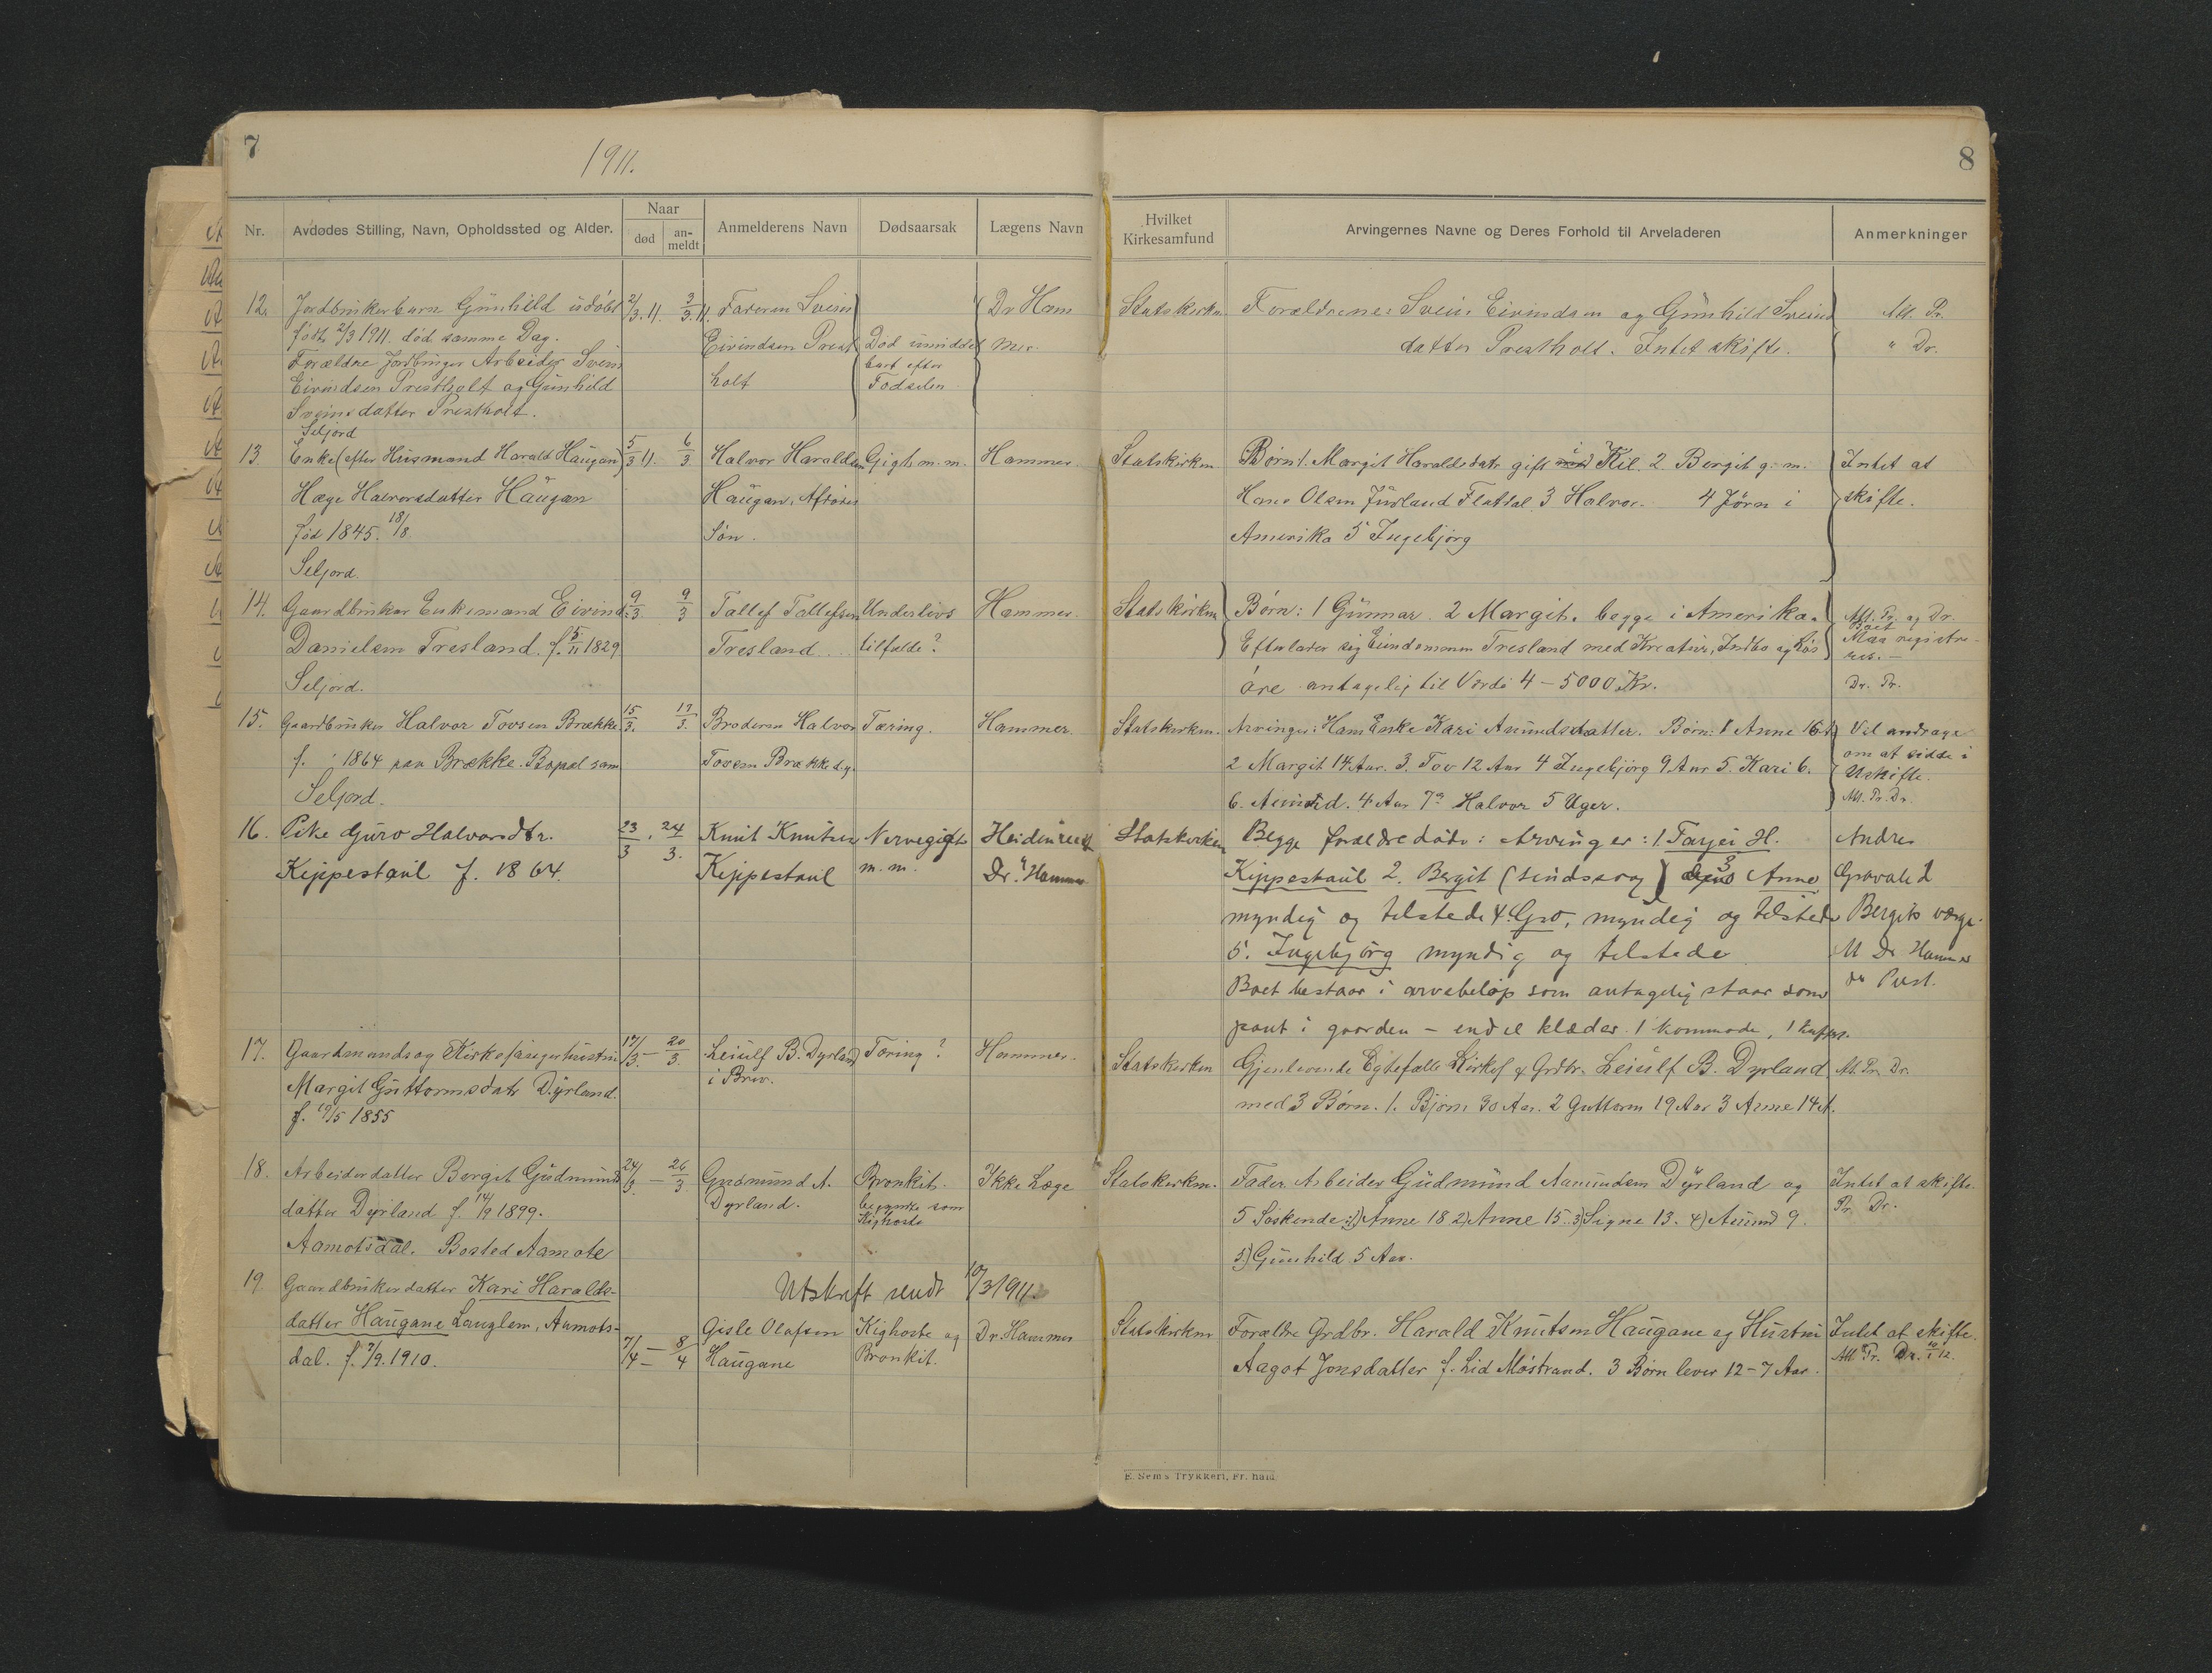 7
1911.
8
Nr.
Avdødes Stilling, Navn, Opholdssted og Alder.
Naar
død
an-
meldt
Anmelderens Navn
Dødsaarsak
Lægens Navn
Hvilket
Kirkesamfund
Arvingernes Navne og Deres Forhold til Arveladeren
Anmerkninger
12. Jordbrukerbarn Gunhild udøbt
født 2/3 1911. død samme Dag.
Forældre Arbeider Svein
Eivindsen Prestholt og Gunhild
Sveinsdatter Prestholt.
Seljord
2/3.11. 3/3.11.
Faderen Svein
Eivindsen Prest
holt
Død umiddel
bart efter
Fødselen
Dr Ham
mer.
Statskirken
Forældrene: Svein Eivindsen og Gunhild Sveins
datter Prestholt. Intet skifte.
Att. Pr.
" Dr.
13 Enke (efter Husmand Harald Haugan)
Hæge Halvorsdatter Haugan
Fød 1845. 18/8
Seljord.
5/3 11. 6/3
Halvor Haraldsen
Haugan, Afdødes
Søn.
Gigt m. m.
Hammer.
Statskirken
Børn 1. Margit Haraldsdatr gift i Kil. 2 Bergit g. m.
Hans Olsen Jūvland Flatdal 3 Halvor. 4 Jørn i
Amerika 5 Ingebjørg
Intet at
skifte.
14. Gaardbruker Enkemand Eivind
Danielsen Tresland. f. 5/11 1829
Seljord.
9/3 9/3
Tallef Tallefsen
Tresland
Underlivs
tilfælde?
Hammer.
Statskirken
Børn: 1 Gunnar. 2 Margit. begge i Amerika.
Efterlader sig Eiendommen Tresland med Kreatur, Indbo og Løs
øre antagelig til Værdi 4 – 5000 Kr.
Att. Pr. og Dr.
Boet
Maa registre-
res. –
Dr. Pr.
15. Gaardbruker Halvor Tovsen Brække
f. 1864 paa Brække. Bopæl sam
Seljord.
15/3. 17/3.
Broderen Halvor
Tovsen Brække d.y.
Tæring.
Hammer.
Statskirken.
Arvinger: Hans Enke Kari Amundsdatter. Børn: 1 Anne 16 A
2 Margit 14 Aar. 3. Tov 12 Aar 4 Ingebjørg 9 Aar 5. Kari 6.
6. Amund. 4 Aar 7. Halvor 5 Uger.
Vil andrage
om at sidde i
Uskifte.
Att. Pr. Dr.
16. Pike Guro Halvorsdtr.
Kippestaul f. 1864.
23/3. 24/3.
Knut Knutsen
Kippestaul
Nervegigt
m. m.
Dr. Hammer
Statskirken
Begge forældre døde: Arvinger: 1. Tarjei H.
Kippestaul 2. Bergit (sindssvag) 3 Anne
myndig og tilstede 4. Gro, myndig og tilstede
5. Ingebjørg myndig og tilstede
Boet bestaar i arvebeløp som antagelig staar som
pant i gaarden – endel klæder 1 kommode, 1 kuffert.
Andres
Gravalid
Bergits værge.
Att Dr Hammer
17. Gaardmands og Kirkesangerhustru
Margit Guttormsdatr Dyrland.
f. 19/5 1855
17/3 – 20/3
Leiulf B. Dyrland
i Brev.
Tæring?
Hammer.
Statskirken
Gjenlevende Egtefælle Kirkes. & Grdbr. Leiulf B. Dyrland
med 3 Børn. 1. Bjørn 30 Aar. 2 Guttorm 19 Aar 3 Anne 14 A.
Att. Pr. Dr.
18. Arbeiderdatter Bergit Gudmunds
datter Dyrland f. 14/9 1899.
Aamotsdal. Bosted Aamote
24/3 – 26/3
Gudmund A.
Dyrland.
Bronkit.
begyndte som
Kighoste
Ikke Læge
Statskirken.
Fader. Arbeider Gudmund Aamundsen Dyrland og
5 Søskende: 1) Anne 18 2) Anne 15. 3) Signe 13. 4) Amund 9.
5) Gunhild 5 Aar.
Intet at skifte.
Pr. Dr.
19. Gaardbrukerdatter Kari Haralds-
datter Haugane Langlem, Aamots-
dal. f. 7/9. 1910.
Utskrift sendt 10/3 1911.
7/4 – 8/4
Gisle Olafsen
Haugane
Kighoste og
Bronkit.
Dr. Hammer
Statskirken
Forældre Grdbr. Harald Knutsen Haugane og Hustru
Aagot Jonsdatter f. Lid Møstrand. 3 Børn lever 12 – 7 Aar.
Intet at skifte.
Att Pr. Dr.
E. Sem's Trykkeri, Fr.hald